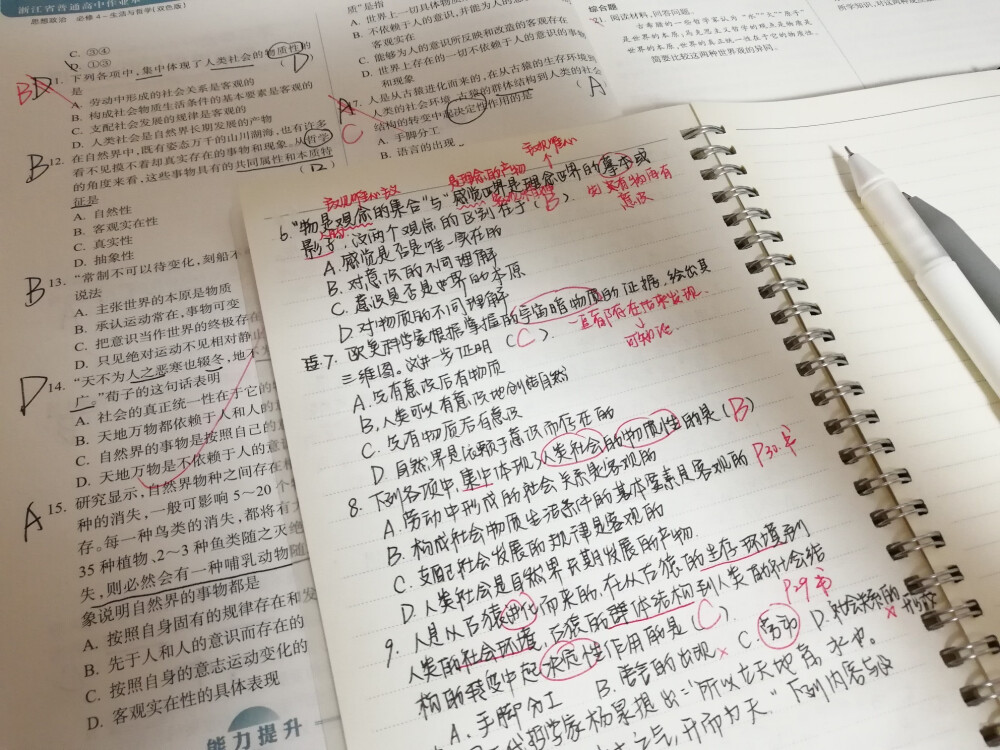 浙江省普通高中作业本
思想政治 必修4-生活与哲学(双色版)
C. ③④
D. ①③
11. 下列各项中,集中体现了人类社会的物质性的
是 (D)
A. 劳动中形成的社会关系是客观的
B. 构成社会物质生活条件的基本要素是客观的
C. 支配社会发展的规律是客观的
D. 人类社会是自然界长期发展的产物
B D
B 12. 在自然界中,既有姿态万千的山川湖海,也有许多
看不见摸不着却真实存在的事物和现象。从哲学
的角度来看,这些事物具有的共同属性和本质特
征是
A. 自然性
B. 客观实在性
C. 真实性
D. 抽象性
B 13. “常制不可以待变化,刻船不
说法
A. 主张世界的本原是物质
B. 承认运动常在,事物可变
C. 把意识当作世界的终极存在
D. 只见绝对运动不见相对静止
D 14. “天不为人之恶寒也辍冬,地不
广。”荀子的这句话表明
A. 社会的真正统一性在于它的
B. 天地万物都依赖于人和人的
C. 自然界的事物是按照自己的
D. 天地万物是不依赖于人的意
A 15. 研究显示,自然界物种之间存在
种的消失,一般可影响5~20个
存。每一种鸟类的消失,都将有
35种植物、2~3种鱼类随之灭绝
失,则必然会有一种哺乳动物随
象说明自然界的事物都是
A. 按照自身固有的规律存在和发
B. 先于人和人的意识而存在的
C. 按照自身的意志运动变化的
D. 客观实在性的具体表现
能力提升
质”是指
A. 世界上一切具体物质
B. 不依赖于人的意识,并能为人的意
客观实在
C. 能够为人的意识所反映和改造的客观存在
D. 世界上存在的一切不依赖于人的意识的事物
和现象
17. 人是从古猿进化而来的,在从古猿的生存环境到
人类的社会环境、古猿的群体结构到人类的社会
结构的转变中起决定性作用的是 (A
A. 手脚分工
B. 语言的出现
A
C
综合题
21. 阅读材料,回答问题。
古希腊的一些哲学家认为“水”“火”“原子”
是世界的本原;马克思主义哲学的观点是物质是
世界的本原,世界的真正统一性在于它的物质性。
简要比较这两种世界观的异同。
客观唯心
主观唯心主义
是理念的产物
6. “物是观念的集合”与“感觉世界是理念世界的摹本或
影子”,这两个观点的区别在于(B).
先有物再有
意识
A. 感觉是否是唯一实在的
B. 对意识的不同理解
C. 意识是否是世界的本原
D. 对物质的不同理解
7. 欧美科学家根据掌握的宇宙暗物质的证据,绘出其
三维图。这进一步证明 (C).
一直都存在后来发现
可知论
A. 先有意识后有物质
B. 人类可以有意识地创造自然
C. 先有物质后有意识
D. 自然界是依赖于意识而存在的
8. 下列各项中,集中体现人类社会的物质性的是(B)
A. 劳动中形成的社会关系是客观的
B. 构成社会物质生活条件的基本要素是客观的 P30.书
C. 支配社会发展的规律是客观的
D. 人类社会是自然界长期发展的产物
9. 人是从古猿进化而来的,在从古猿的生存环境到
人类的社会环境、古猿的群体结构到人类的社会结
构的转变中起决定性作用的是(C) P29书
A. 手脚分工 B. 语言的出现 C. 劳动 D. 社会关系的形成
哲学家杨泉提出:“所以立天地者,水也。
之气,升而为天。”下列内容与